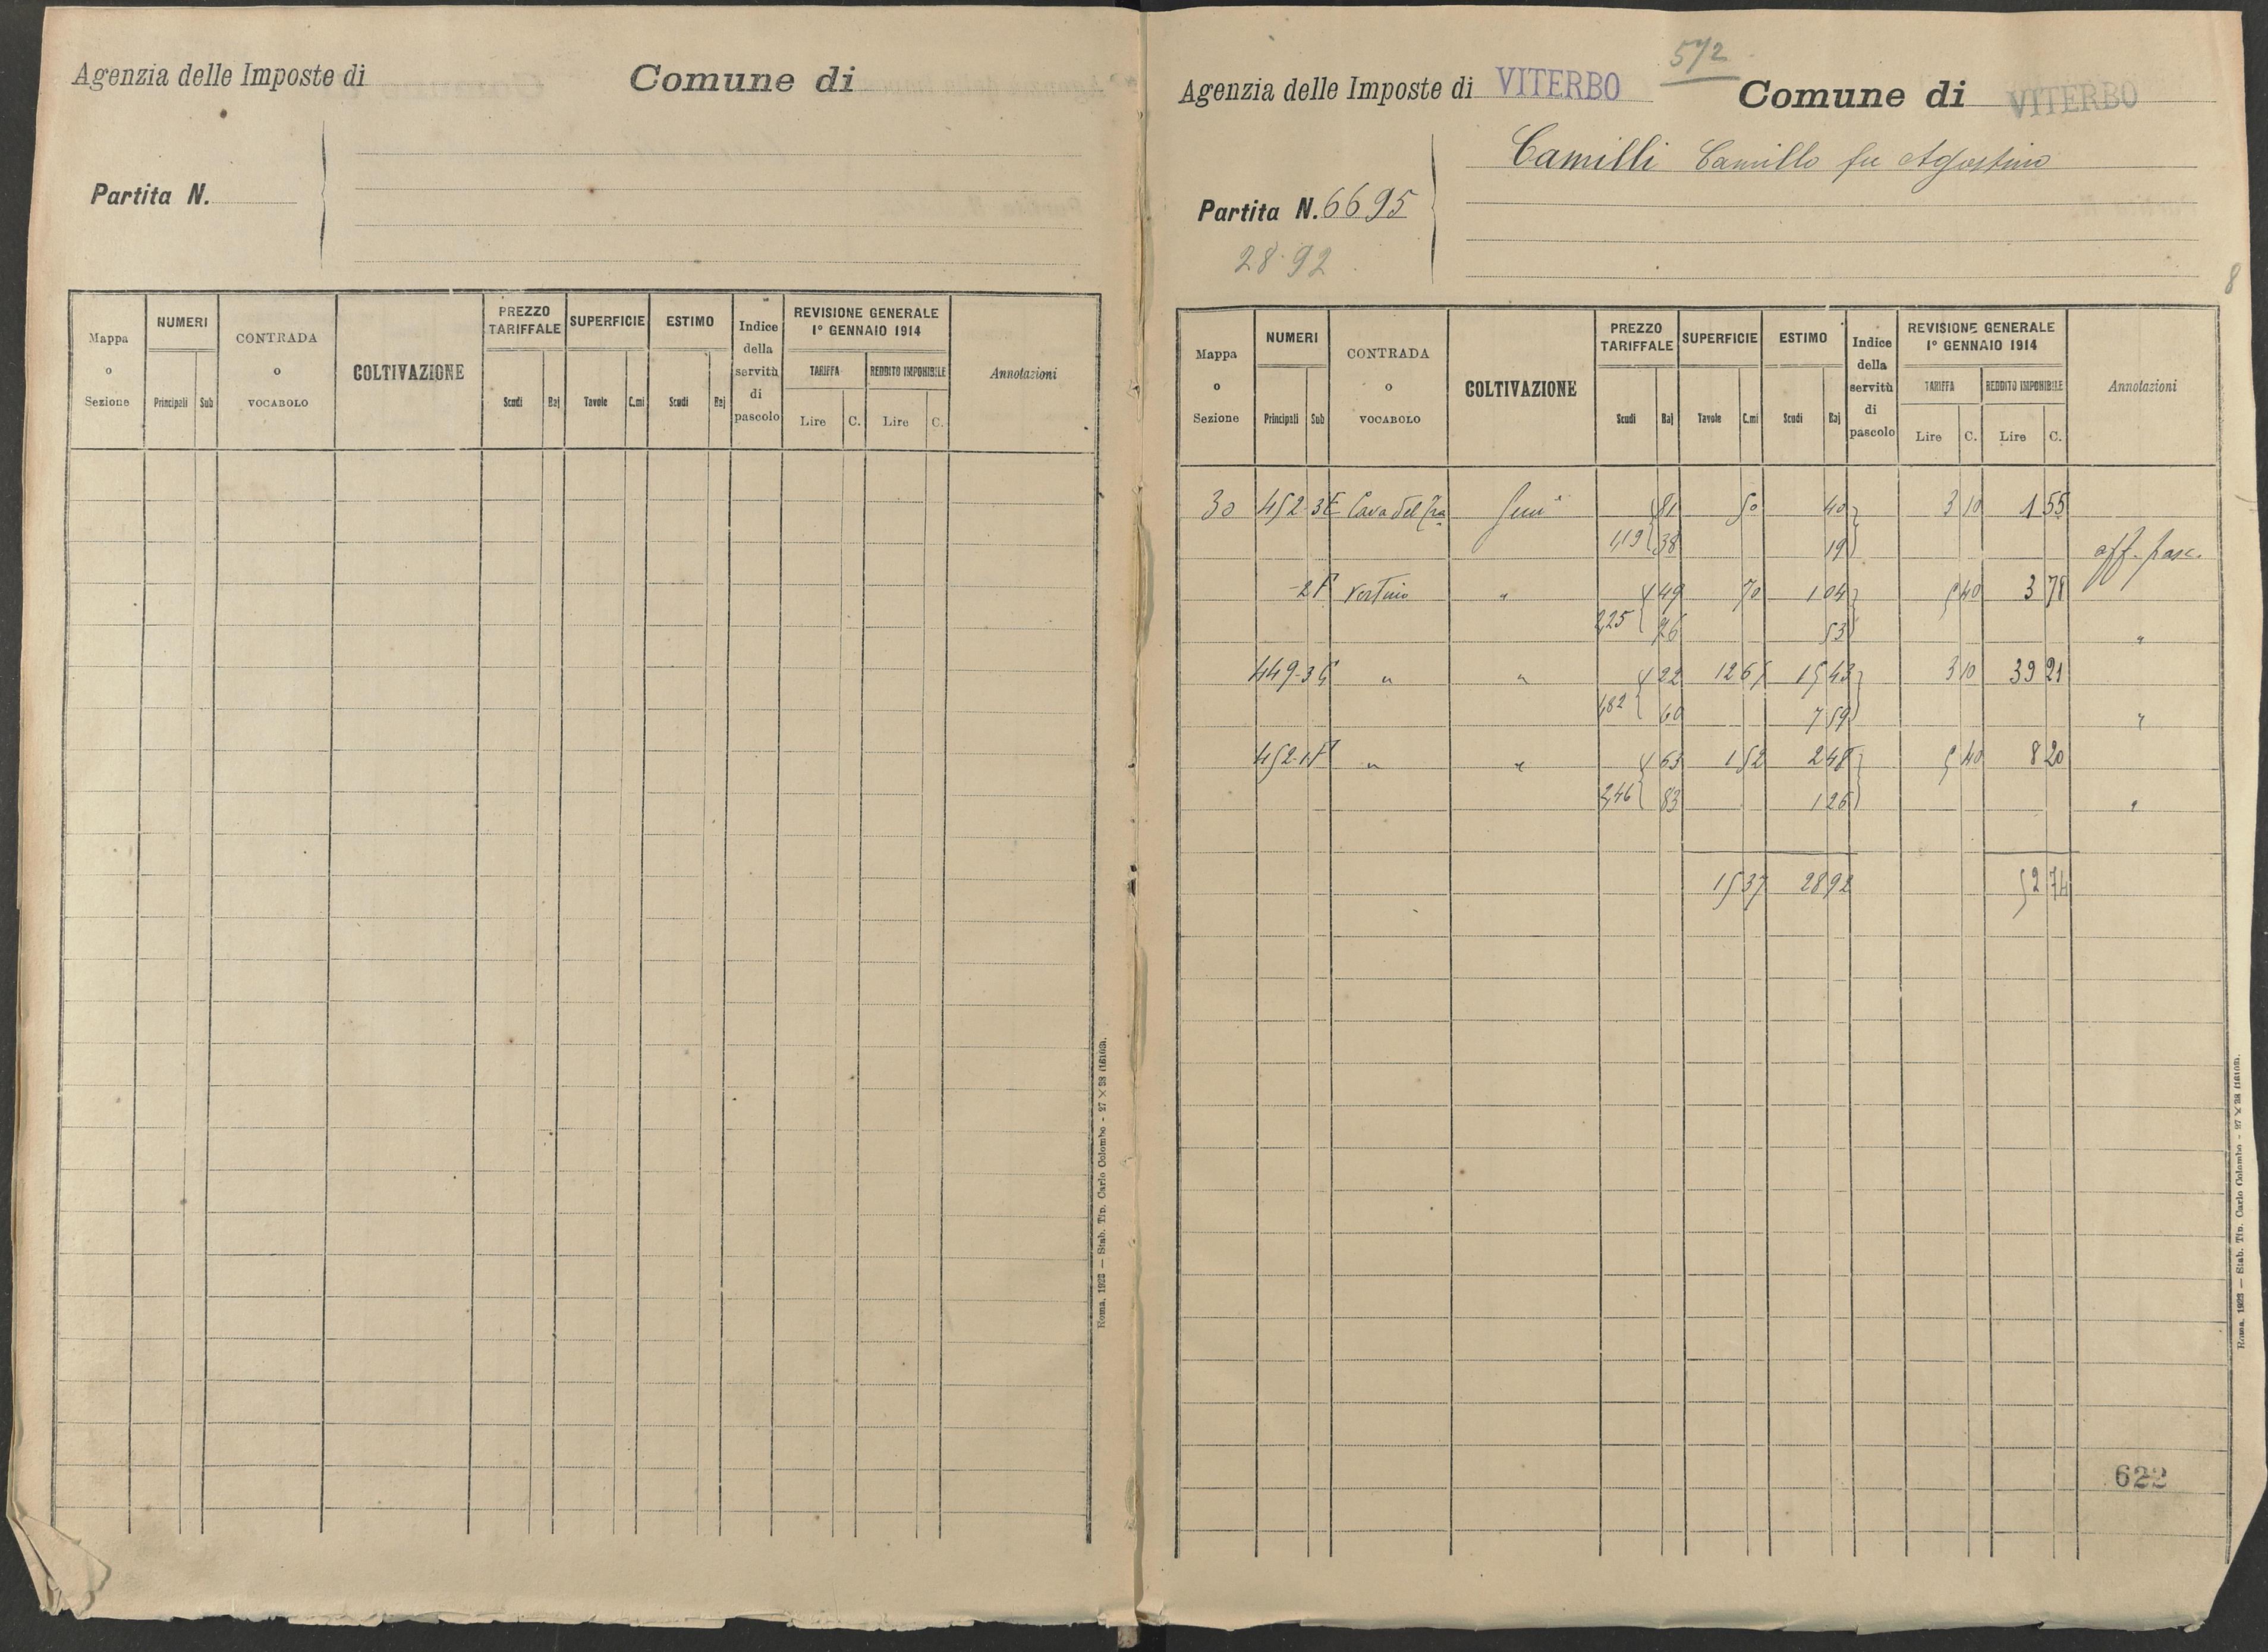 Agenzia delle Imposte di
Comune di
Partita N.
Mappa o Sezione
NUMERI
Principali Sub
CONTRADA o VOCABOLO
COLTIVAZIONE
PREZZO TARIFFALE
Scudi Baj
SUPERFICIE
Tavole C.mi
ESTIMO
Scudi Baj
Indice della servitù di pascolo
REVISIONE GENERALE
1º GENNAIO 1914
TARIFFA
Lire C.
REDDITO IMPONIBILE
Lire C.
Annotazioni
Roma, 1923 — Stab. Tip. Carlo Colombo - 27 × 38 (16103).
572
Agenzia delle Imposte di VITERBO
Comune di VITERBO
Camilli Camillo fu Agostino
Partita N. 6695
28.92
8
Mappa o Sezione
NUMERI
Principali Sub
CONTRADA o VOCABOLO
COLTIVAZIONE
PREZZO TARIFFALE
Scudi Baj
SUPERFICIE
Tavole C.mi
ESTIMO
Scudi Baj
Indice della servitù di pascolo
REVISIONE GENERALE
1º GENNAIO 1914
TARIFFA
Lire C.
REDDITO IMPONIBILE
Lire C.
Annotazioni
30 452-3E Cava del 81 50 40 3 10 1 55
1,19 38 19 aff. pasc.
-2F " 1 49 70 1 04 5 40 3 78
2,25 76 53 "
449-3G " " 1 22 12 65 15 43 3 10 39 21
1,82 60 7 59 "
452-1F " " 1 63 1 52 2 48 5 40 8 20
2,46 83 1 26 "
15 37 28 92 52 74
622
Roma, 1923 — Stab. Tip. Carlo Colombo - 27 × 38 (16103).